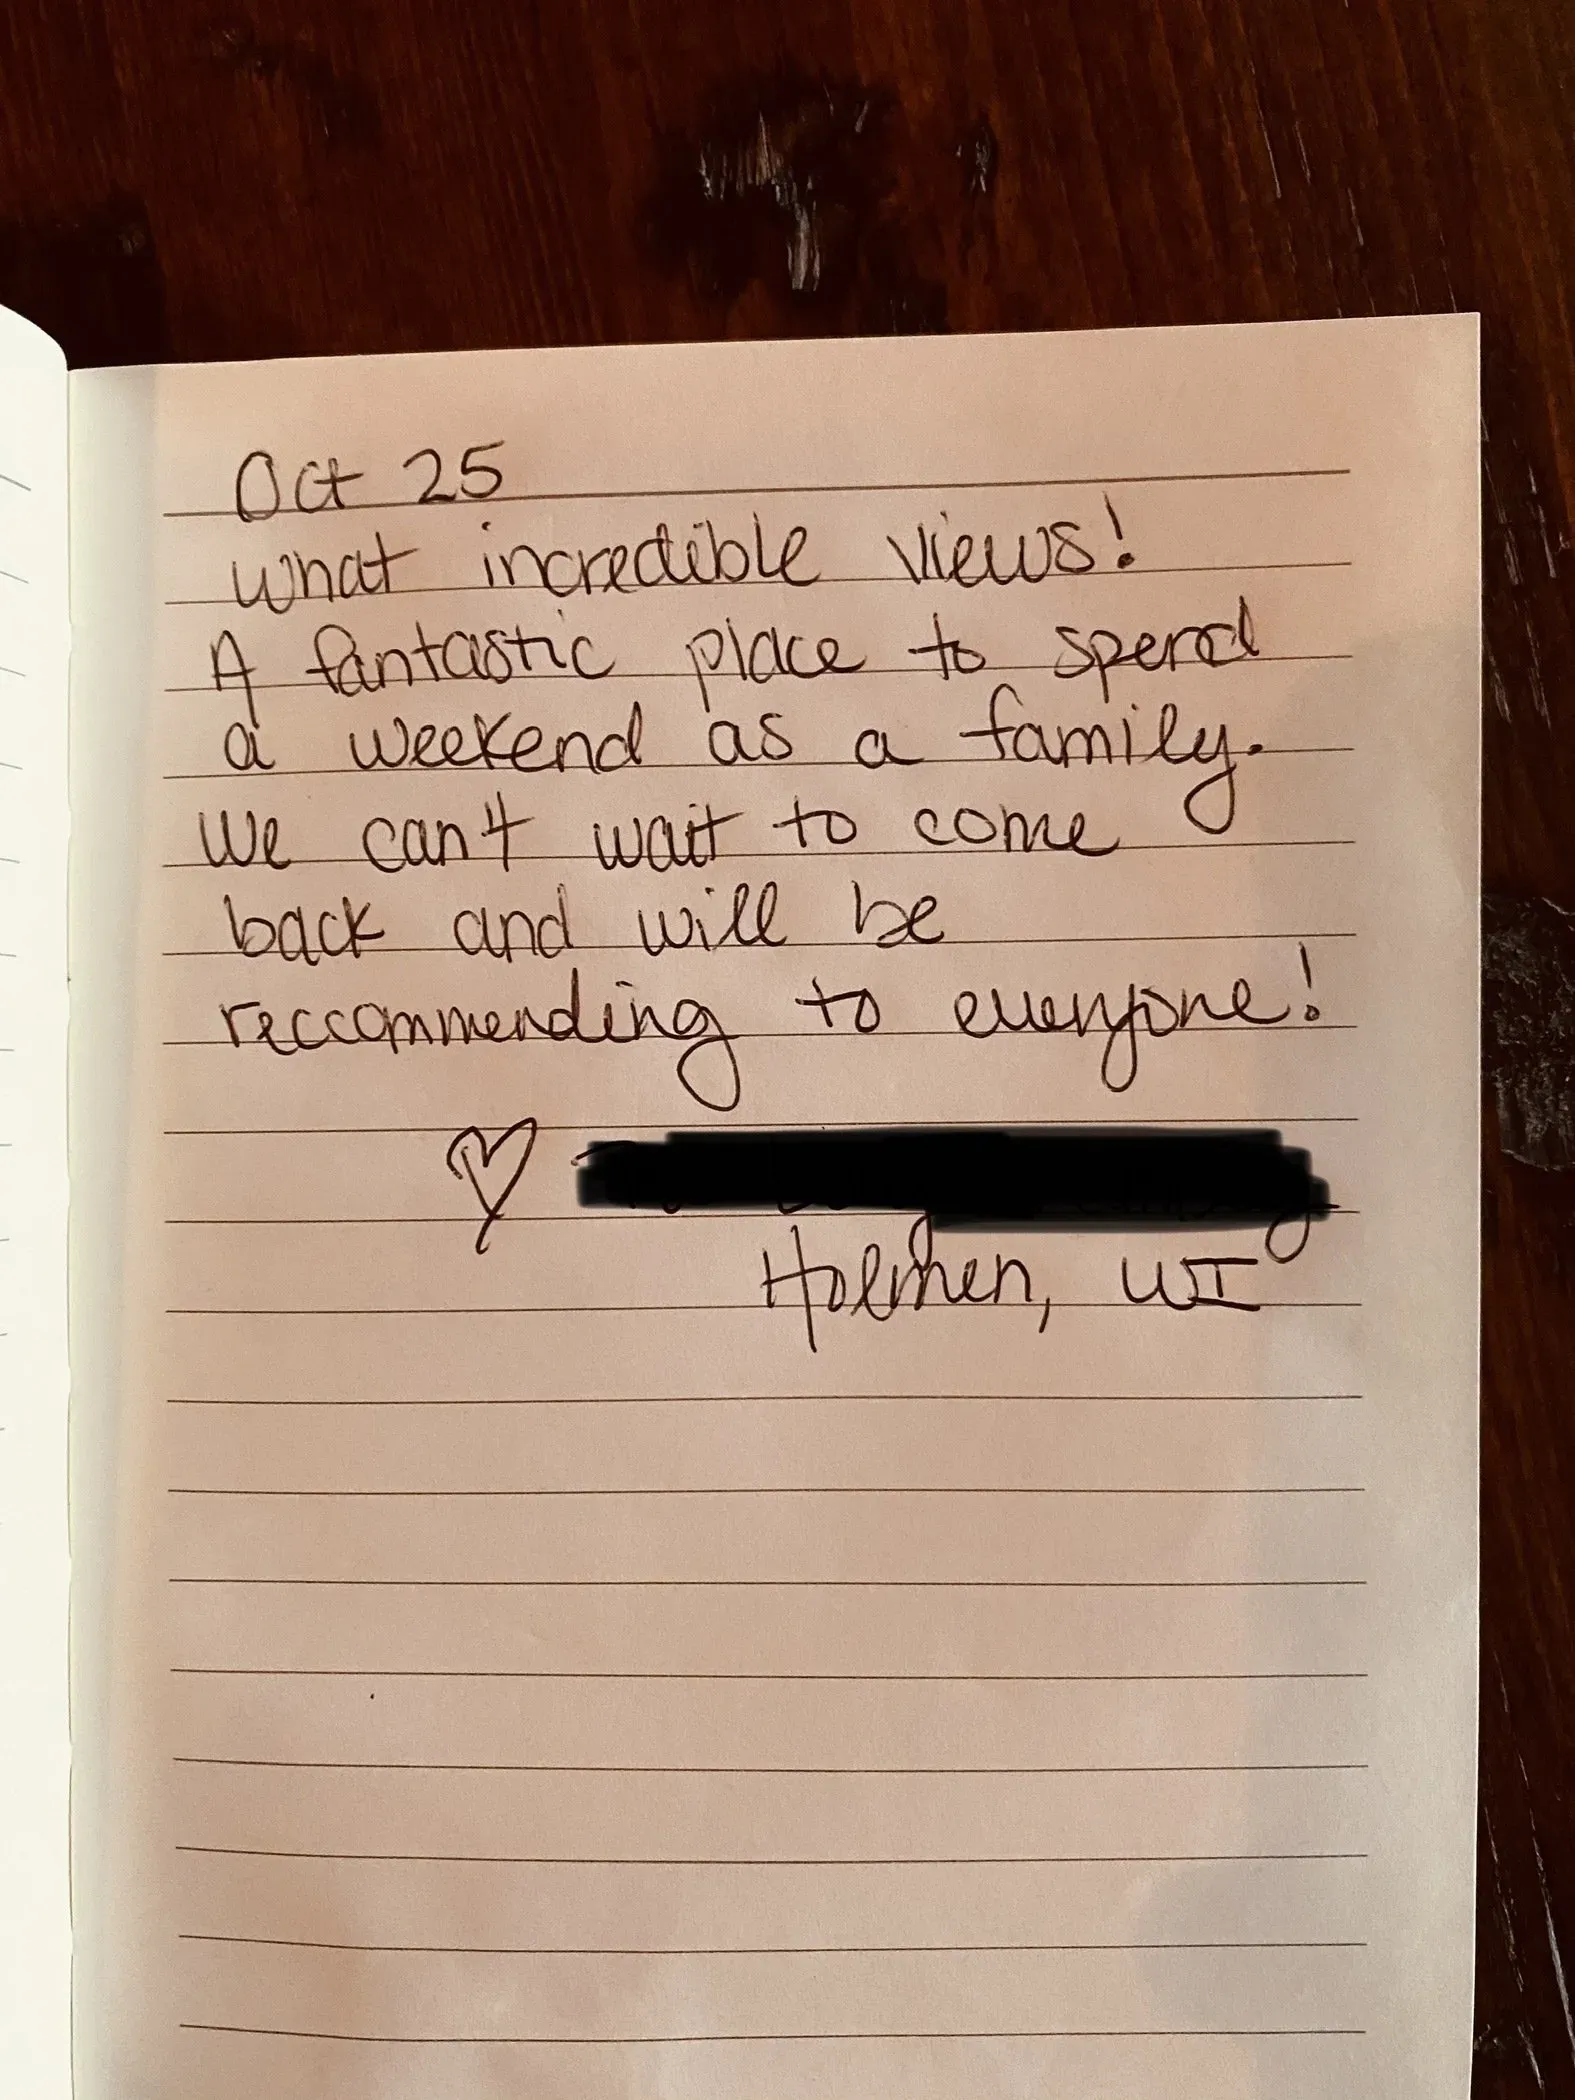 Oct 25
What incredible views!
A fantastic place to spend
a weekend as a family.
We can't wait to come
back and will be
reccommending to everyone!
Holmen, WI